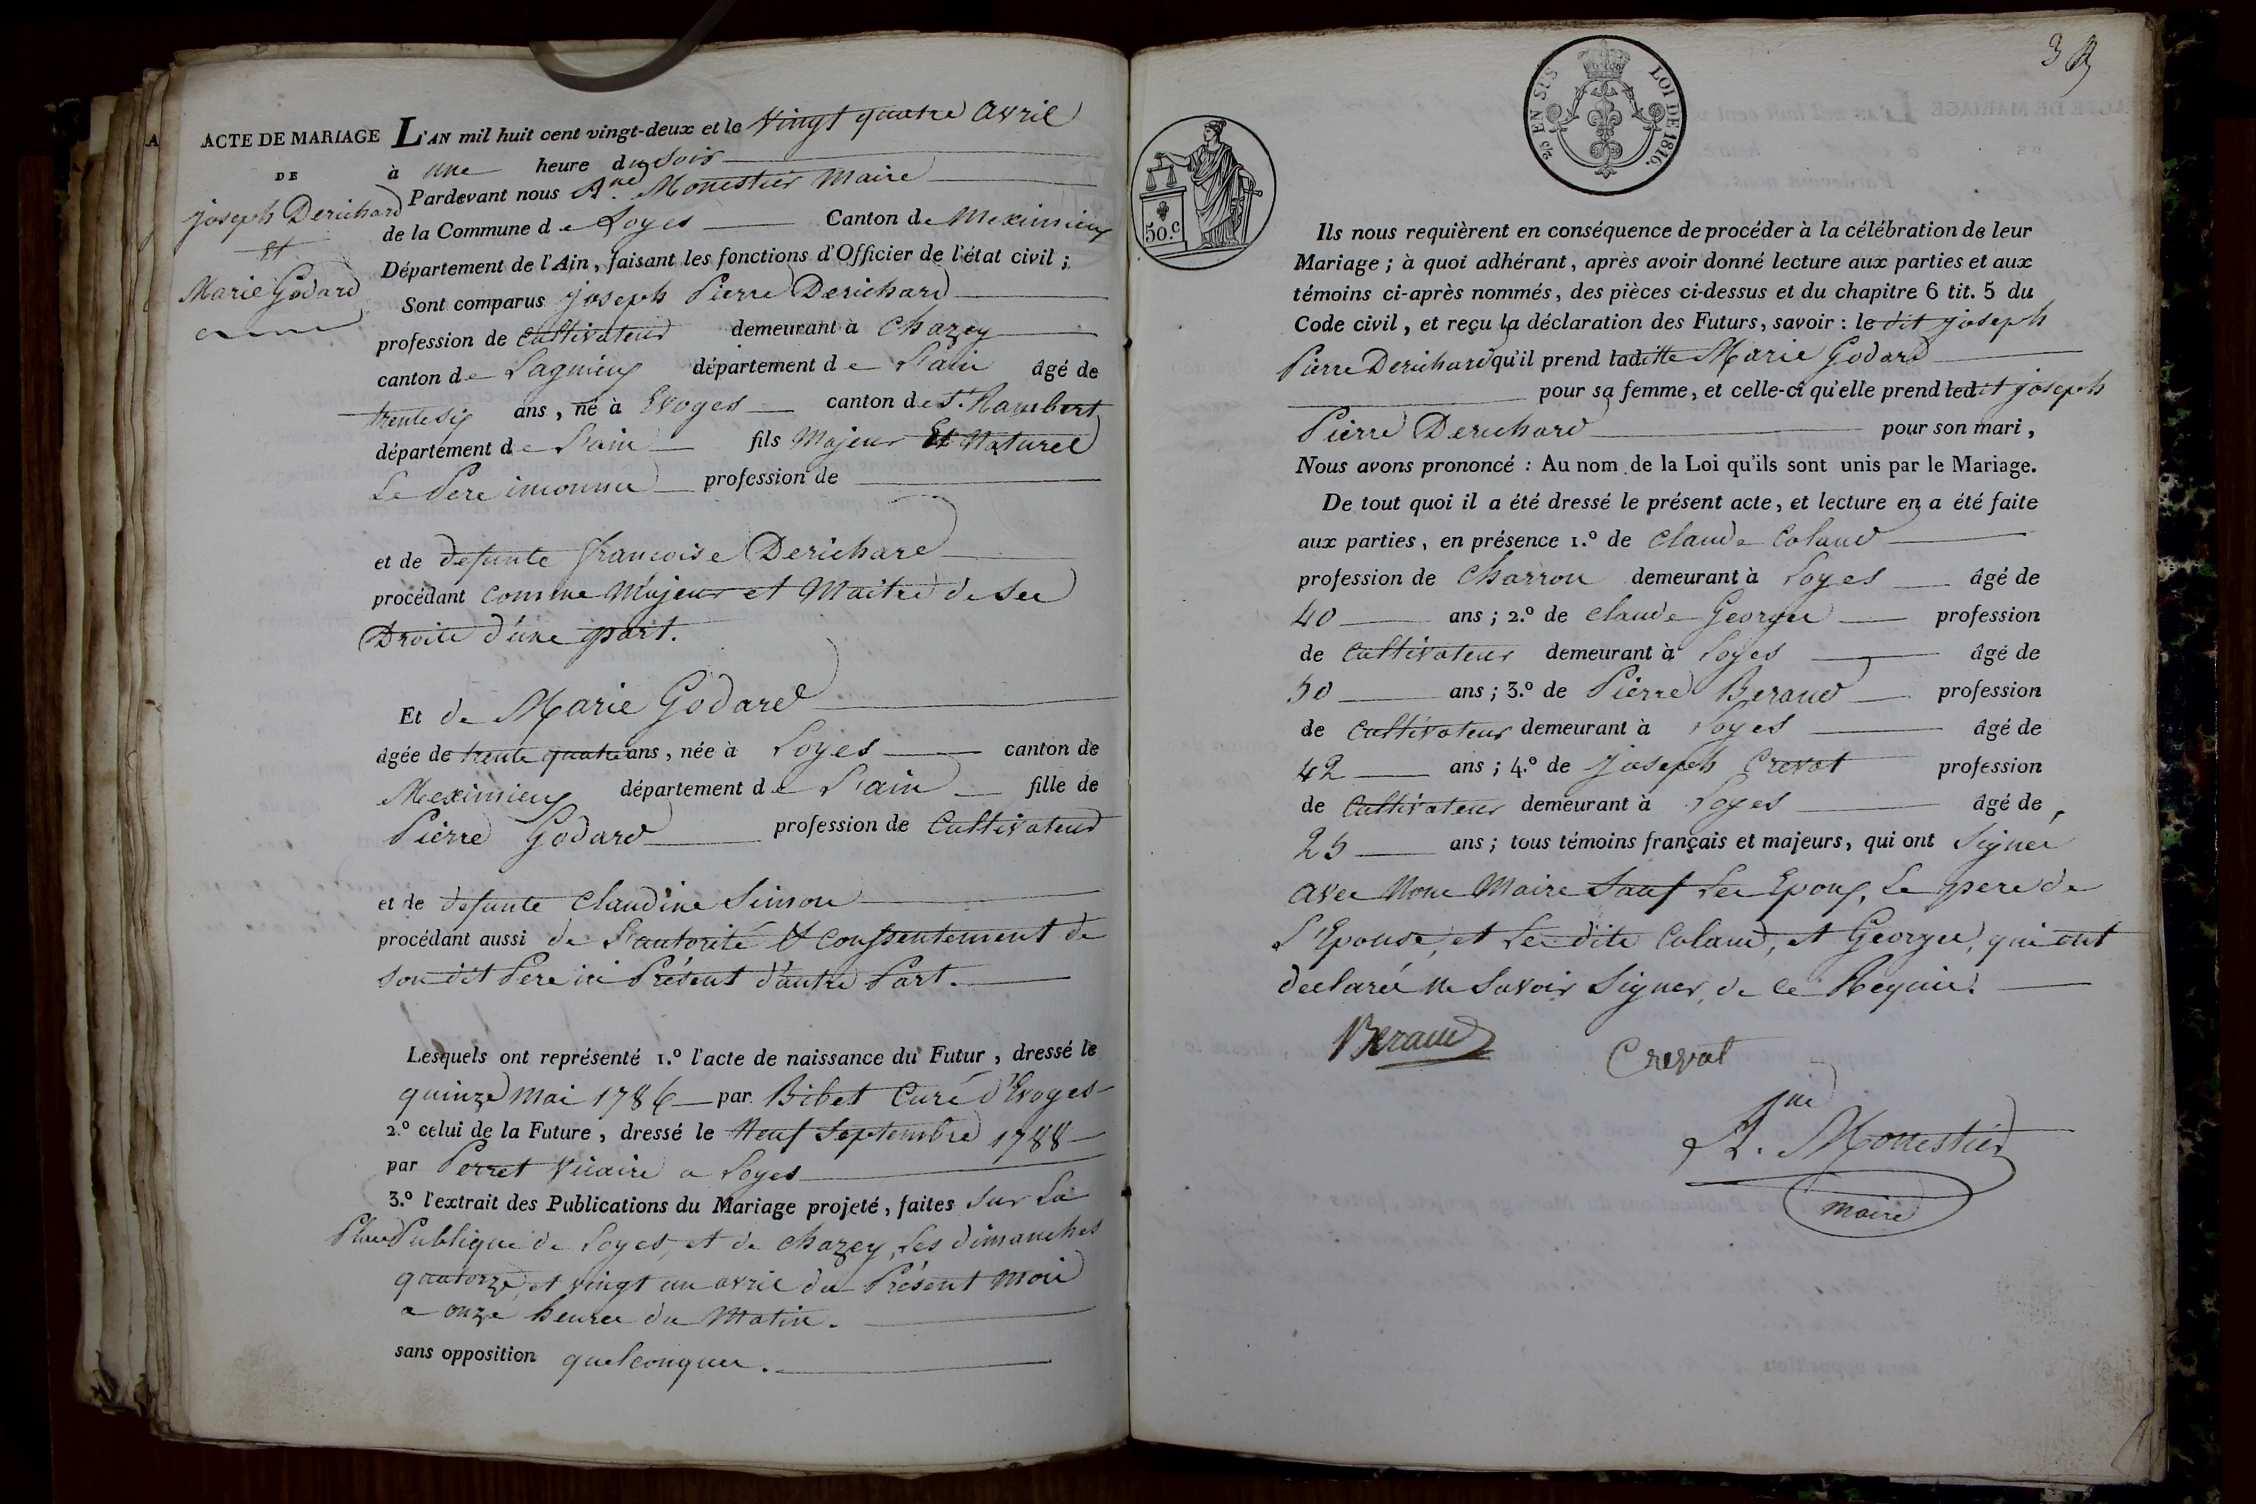 ACTE DE MARIAGE
DE
joseph Derichard
Et
Marie Godard
L'AN mil huit cent vingt-deux et le vingt quatre avril
à une heure du soir
Pardevant nous A.ne Monestier Maire
de la Commune de Loyes Canton de Meximieux
Département de l'Ain, faisant les fonctions d'Officier de l'état civil ;
Sont comparus joseph Pierre Derichard
profession de Cultivateur demeurant à Chazey
canton de Lagnieux département de L'ain âgé de
trente six ans, né à Evoges canton de St. Rambert
département de L'ain fils Majeur Et Naturel
Le Pere inconnu profession de
et de defunte francoise Derichard
procédant comme Majeur et Maitre de ses
Droits d'une part.
Et de Marie Godard
âgée de trente quatre ans, née à Loyes canton de
Meximieux département de L'ain fille de
Pierre Godard profession de Cultivateur
et de defunte Claudine Simon
procédant aussi de L'autorité et Consentement de
son dit Pere ici Présent d'autre Part.
Lesquels ont représenté 1.º l'acte de naissance du Futur, dressé le
quinze mai 1786 par Bibet Curé d'Evoges
2.º celui de la Future, dressé le Neuf Septembre 1788
par Perret vicaire a Loyes
3.º l'extrait des Publications du Mariage projeté, faites sur La
Place Publique de Loyes, et de Chazey, Les dimanches
quatorze, et vingt un avril du Présent mois
a onze heures du Matin.
sans opposition quelconques.
EN SUS
LOI DE 1816.
50.c
Ils nous requièrent en conséquence de procéder à la célébration de leur
Mariage ; à quoi adhérant, après avoir donné lecture aux parties et aux
témoins ci-après nommés, des pièces ci-dessus et du chapitre 6 tit. 5 du
Code civil, et reçu la déclaration des Futurs, savoir : le dit joseph
Pierre Derichard qu'il prend laditte Marie Godard
pour sa femme, et celle-ci qu'elle prend ledit joseph
Pierre Derichard pour son mari,
Nous avons prononcé : Au nom de la Loi qu'ils sont unis par le Mariage.
De tout quoi il a été dressé le présent acte, et lecture en a été faite
aux parties, en présence 1.º de Claude Coland
profession de Charron demeurant à Loyes âgé de
40 ans ; 2.º de Claude Georges profession
de Cultivateur demeurant à Loyes âgé de
50 ans ; 3.º de Pierre Beraud profession
de Cultivateur demeurant à Loyes âgé de
42 ans ; 4.º de Joseph Crevat profession
de Cultivateur demeurant à Loyes âgé de
25 ans ; tous témoins français et majeurs, qui ont signés
avec Nous Maire Sauf Les Epoux, Le pere de
L'Epouse, et Les dits Coland, et Georges, qui ont
declarés ne Savoir Signer, de ce Requis.
Beraud
Crevat
A.ne Monestier
Maire